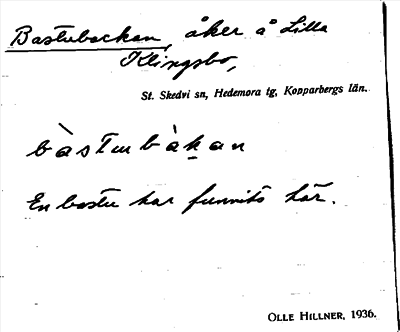 Bastubackan, åker å Lilla
Klingsbo,
St. Skedvi sn, Hedemora tg, Kopparbergs län.
bàstubàkan
En bastu har funnits här.
OLLE HILLNER, 1936.